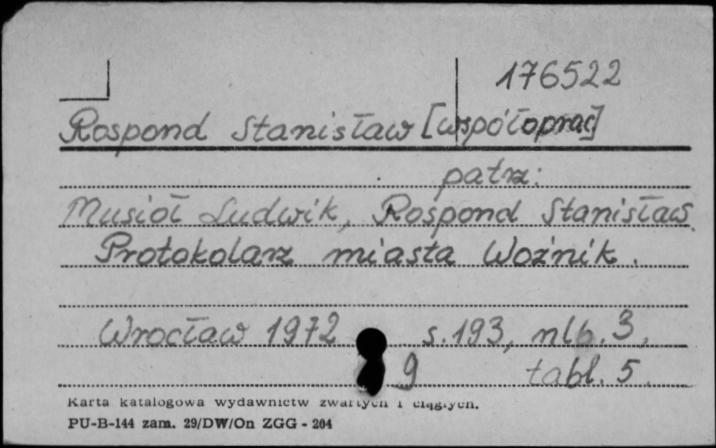 176522
Rospond Stanisław [współoprac]
patrz:
Musioł Ludwik, Rospond Stanisław.
Protokolarz miasta Woźnik.
Wrocław 1972 s. 193, nlb. 3,
9 tabl. 5.
Karta katalogowa wydawnictw zwartych i ciągłych.
PU-B-144 zam. 29/DW/On ZGG - 204